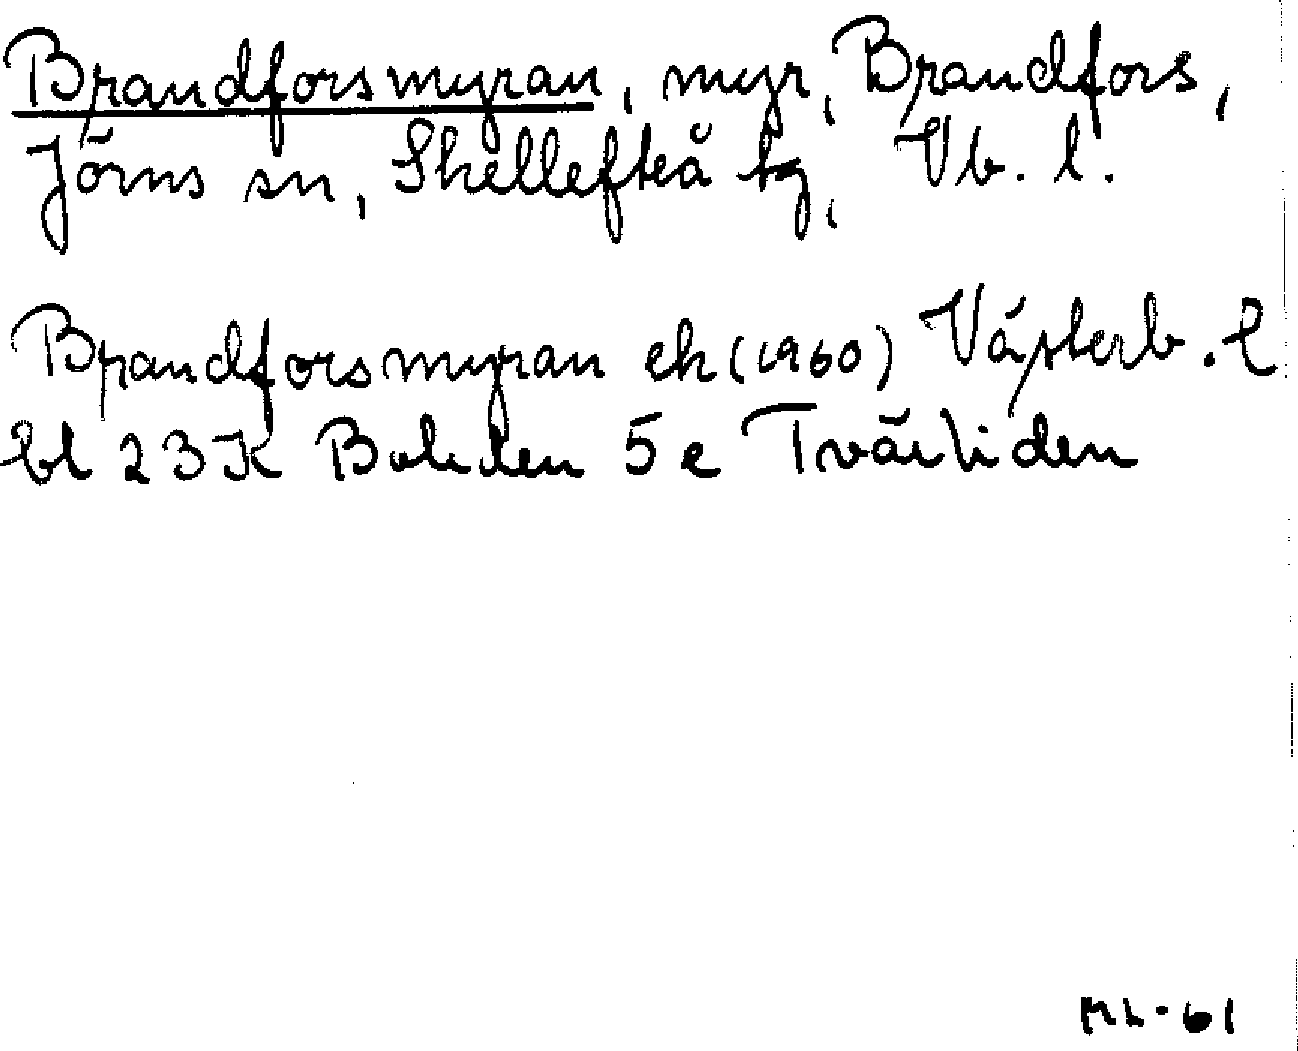 Brandforsmyran, myr, Brandfors,
Jörns sn, Skellefteå tg, Vb. l.
Brandforsmyran ek (1960) Västerb. l
bl 23K Boliden 5e Tvärliden
ML-61